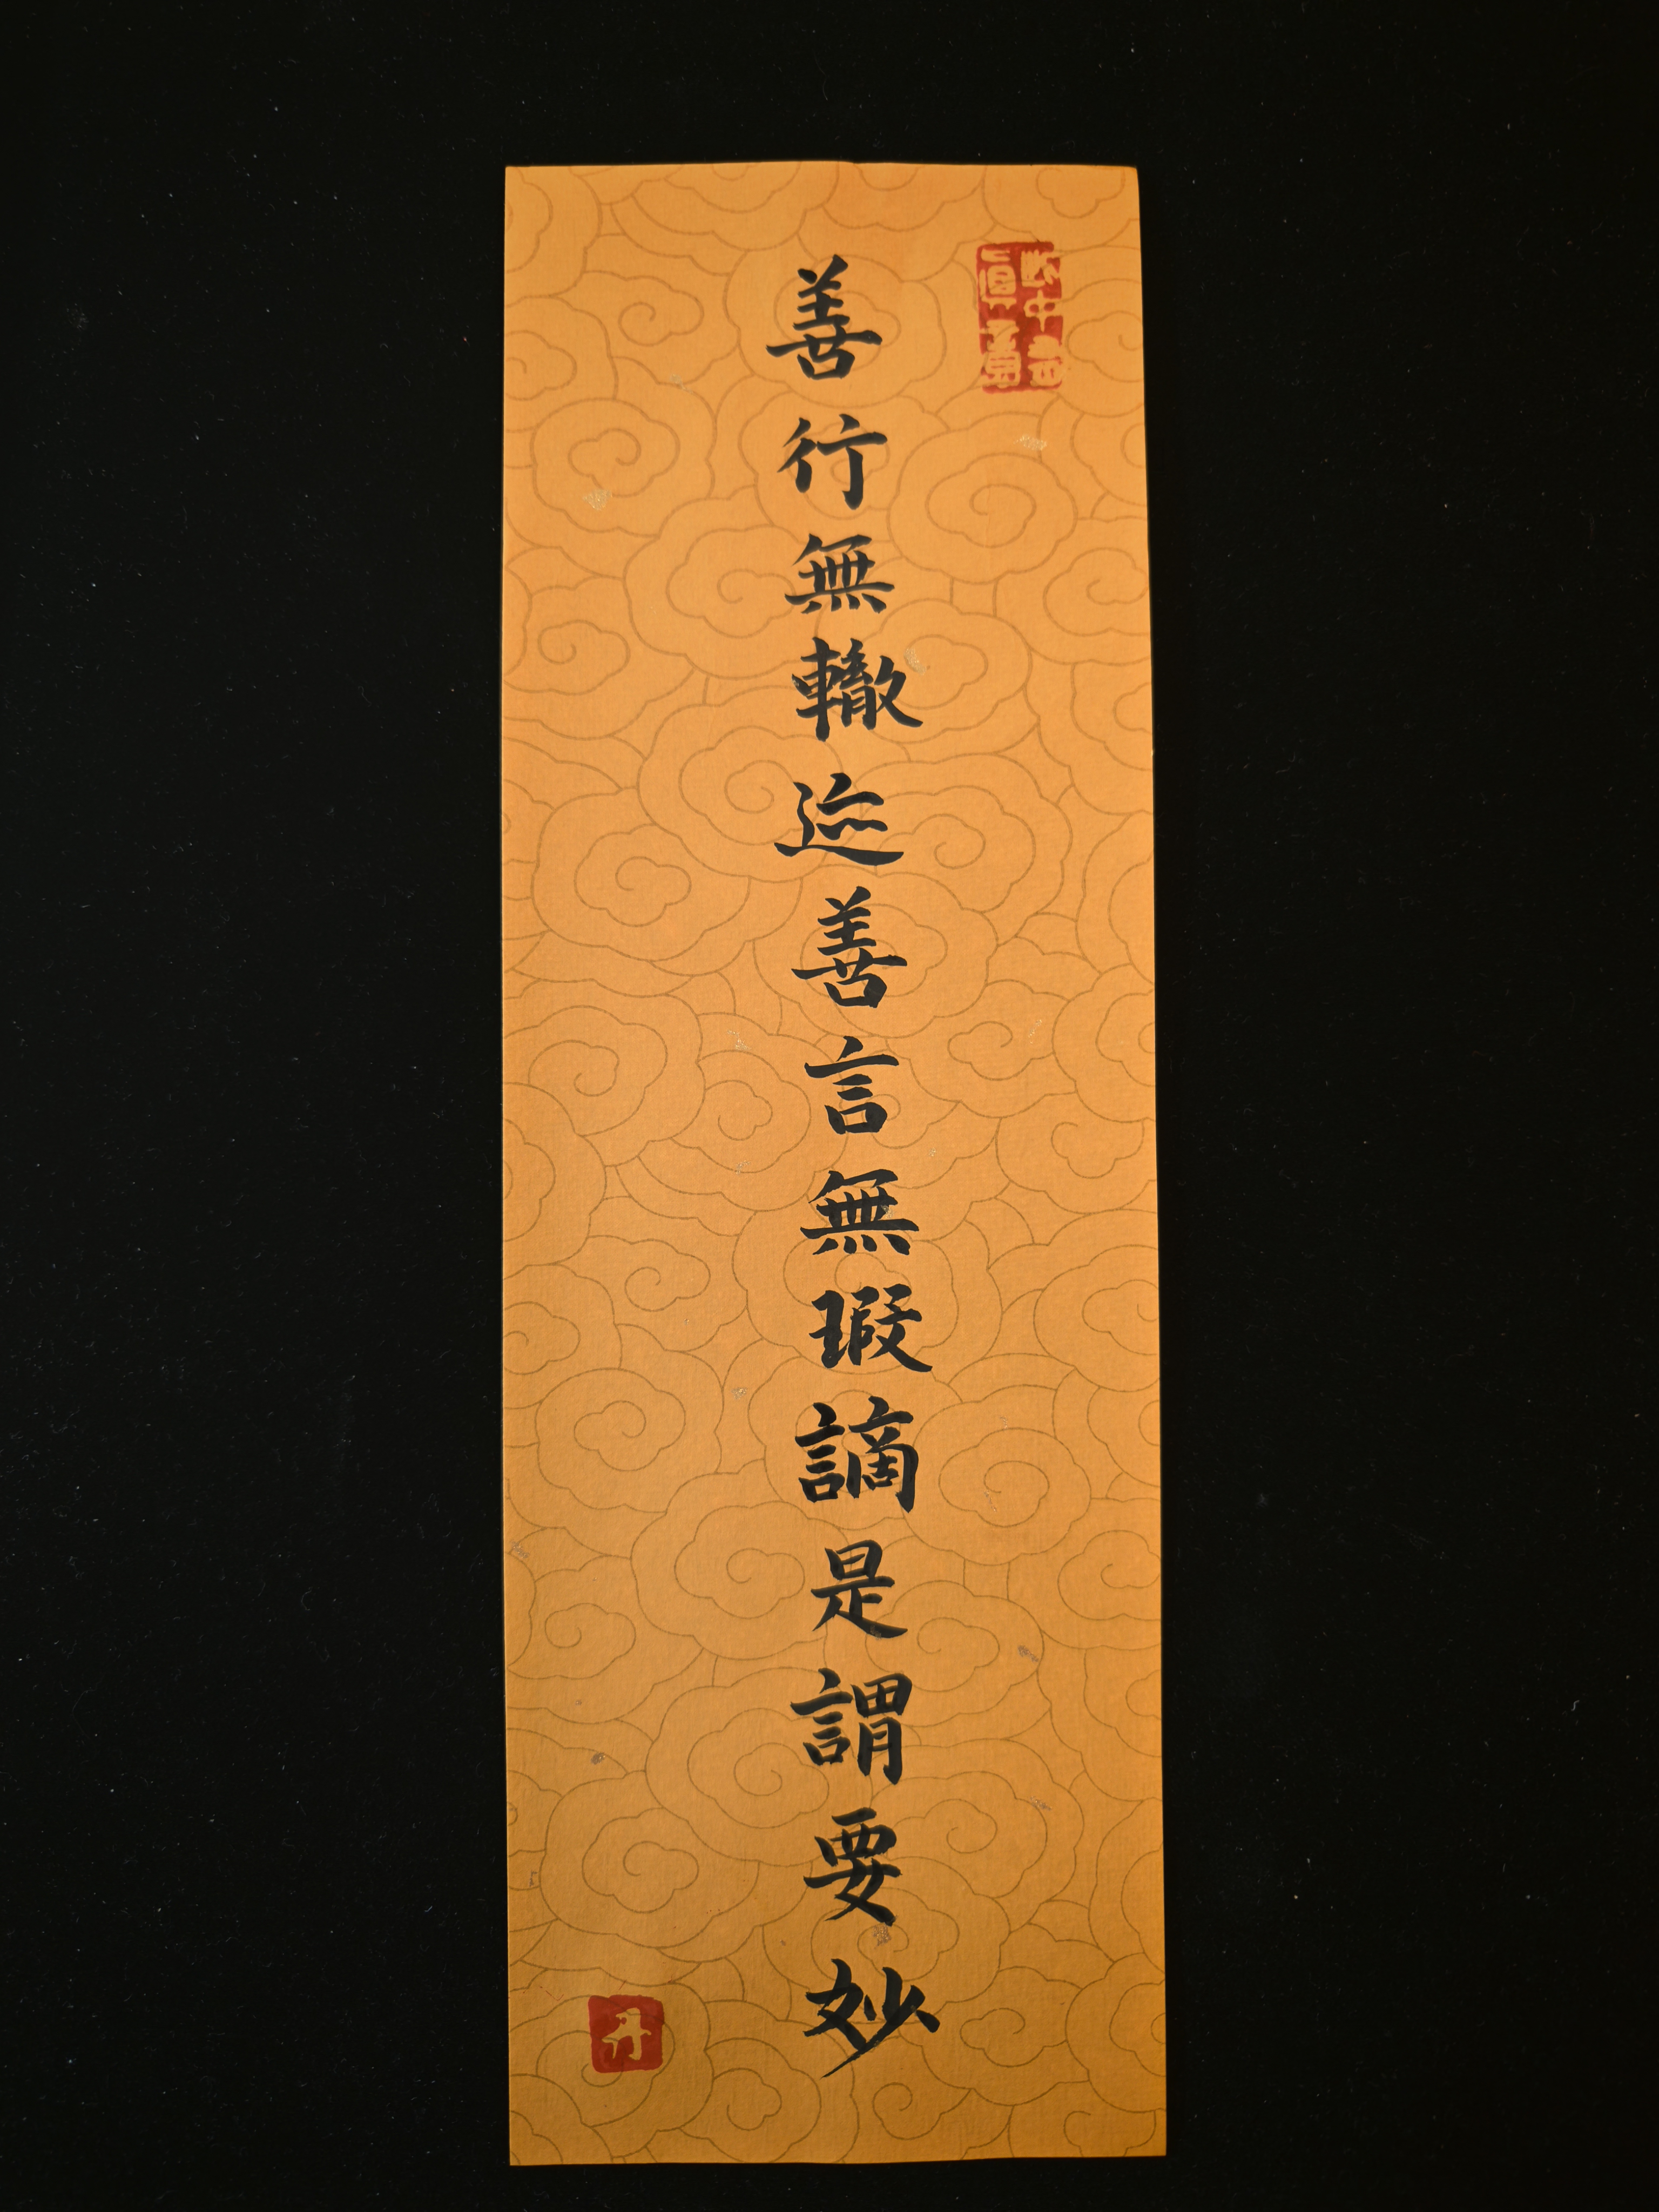 善行無轍迹善言無瑕謫是謂要妙